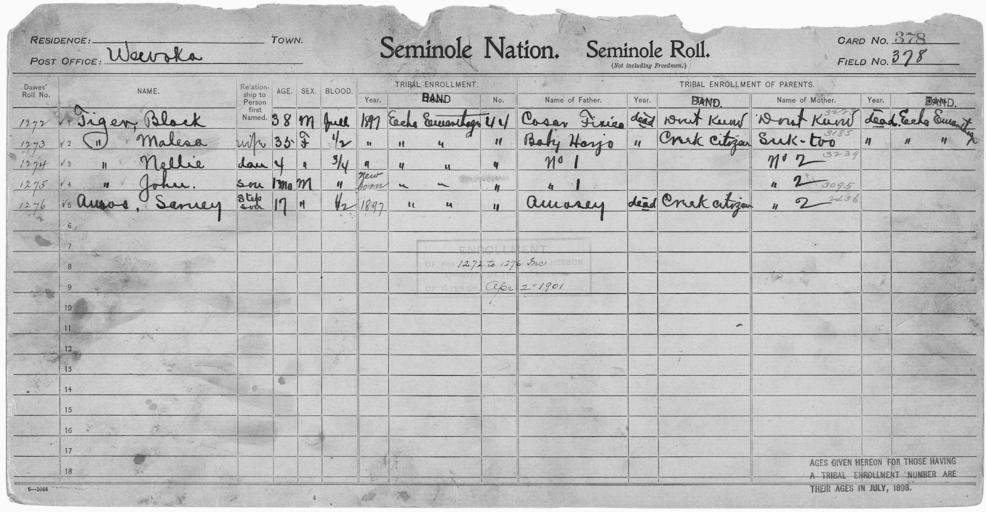 RESIDENCE: TOWN.
POST OFFICE: Wewoka
Seminole Nation. Seminole Roll.
(Not including Freedmen.)
CARD NO. 378
FIELD NO. 378
Dawes' Roll No. NAME. Relationship to Person first Named. AGE. SEX. BLOOD. TRIBAL ENROLLMENT. TRIBAL ENROLLMENT OF PARENTS.
Year. BAND. No. Name of Father. Year. BAND. Name of Mother. Year. BAND.
1272 1 Tiger, Black 38 M full 1897 Echo 44 dead Dont Know Dont Know dead. Echo
1273 2 " Malesa wife 35 F 1/2 " " " " Baby Harjo " Creek citizen Suk-too " " "
1274 3 " Nellie dau 4 " 3/4 " " " " No 1 No 2
1275 4 " John. son 1mo M " New born " " " " 1 " 2
1276 5 Amos, Sarney Step son 17 " 1/2 1897 " " " Amosey dead Creek citizen " 2
6
7
ENROLLMENT
8 1272 to 1276 Inc
9 Apr 2-1901
10
11
12
13
14
15
16
17
18
AGES GIVEN HEREON FOR THOSE HAVING
A TRIBAL ENROLLMENT NUMBER ARE
THEIR AGES IN JULY, 1898.